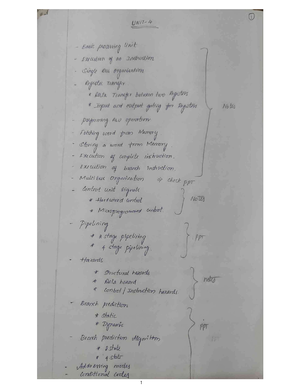 UNIT-2
- Basic processing Unit
- Execution of an Instruction
- Single Bus Organization
- Register Transfer
* Data Transfer between two registers
* Input and output gating for registers
- Performing ALU operation
- Fetching word from Memory
- Storing a word from Memory
- Execution of complete instruction
- Execution of branch instruction
- Multi bus Organization
Notes
- Control unit signals
* Hardwired control
* Microprogrammed control
Notes
- Pipelining
* 2 stage pipelining
* 4 stage pipelining
PPT
- Hazards
* Structural hazards
* Data hazard
* Control / Instruction hazards
Notes
- Branch prediction
* Static
* Dynamic
- Branch prediction Algorithm
* 2 state
* 4 state
PPT
- Addressing modes
- Conditional codes
1